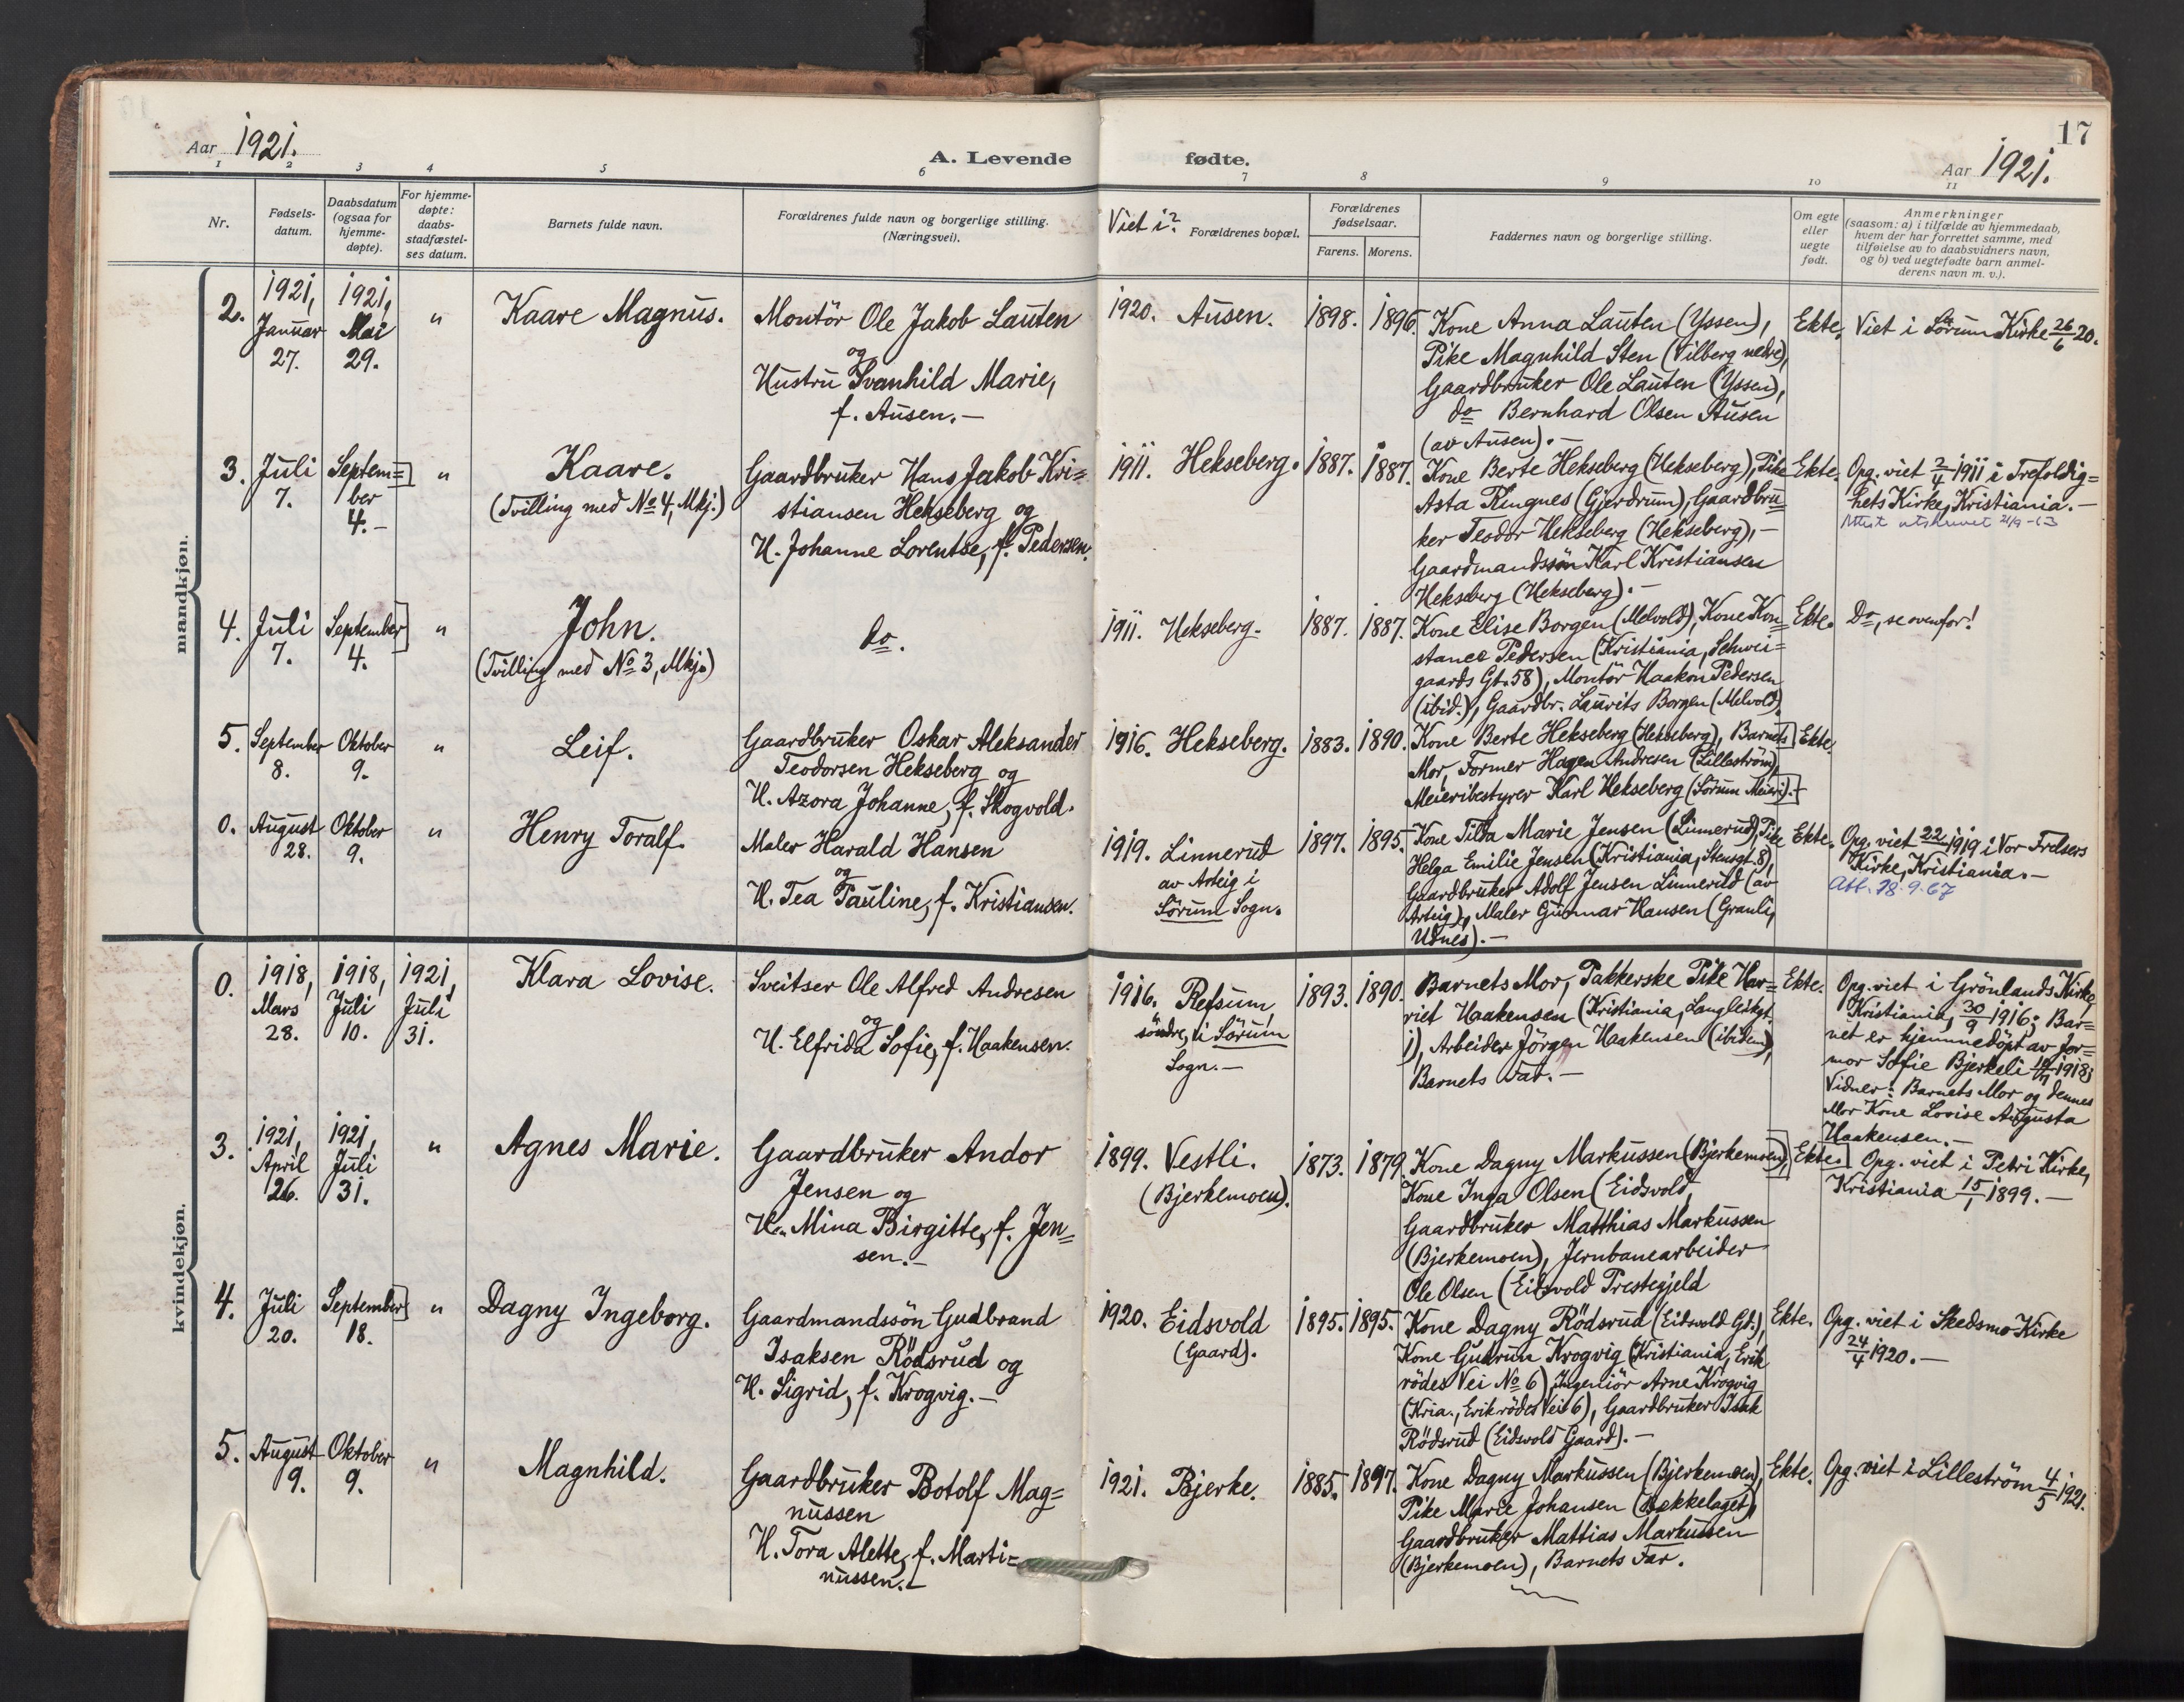 17
Aar 1921.
A. Levende fødte.
Aar 1921.
1 2 3 4 5 6 7 8 9 10 11
Nr.
Fødsels-
datum.
Daabsdatum
(ogsaa for
hjemme-
døpte).
For hjemme-
døpte:
daabs-
stadfæstel-
ses datum.
Barnets fulde navn.
Forældrenes fulde navn og borgerlige stilling.
(Næringsvei).
Viet i?
Forældrenes bopæl.
Forældrenes
fødselsaar.
Farens. Morens.
Faddernes navn og borgerlige stilling.
Om egte
eller
uegte
født.
Anmerkninger
(saasom: a) i tilfælde av hjemmedaab,
hvem der har forrettet samme, med
tilføielse av to daabsvidners navn,
og b) ved uegtefødte barn anmel-
derens navn m. v.).
mandkjøn.
2.
1921,
Januar
27.
1921,
Mai
29.
"
Kaare Magnus.
Montör Ole Jakob Lauten
og
Hustru Svanhild Marie,
f. Ausen.—
1920. Ausen.
1898. 1896.
Kone Anna Lauten (Yssen),
Pike Magnhild Sten (Vilberg nedre),
Gaardbruker Ole Lauten (Yssen),
do Bernhard Olsen Ausen
(av Ausen).—
Ekte.
Viet i Sörum Kirke 26/6 20.
3.
Juli
7.
Septem=
ber
4.—
"
Kaare.
(Tvilling med No 4, Mkj.)
Gaardbruker Hans Jakob Kri=
stiansen Hekseberg og
H. Johanne Lorentse, f. Pedersen.
1911. Hekseberg.
1887. 1887.
Kone Berte Hekseberg (Hekseberg), Pike
Asta Ringnes (Gjerdrum), Gaardbru
ker Teodor Hekseberg (Hekseberg),—
Gaardmandssön Karl Kristiansen
Hekseberg (Hekseberg).—
Ekte.
Opg. viet 2/4 1911 i Trefoldig=
hets Kirke, Kristiania.—
Attest utskrevet
4.
Juli
7.
September
4.
"
John.
(Tvilling med No 3, Mkj.)
do.
1911. Hekseberg.
1887. 1887.
Kone Elise Borgen (Melvold), Kone Kon=
stance Pedersen (Kristiania, Schwei=
gaards Gt. 58), Montör Haakon Pedersen
(ibid.), Gaardbr. Laurits Borgen (Melvold).
Ekte.
Do, se ovenfor!
5.
September
8.
Oktober
9.
"
Leif.
Gaardbruker Oskar Aleksander
Teodorsen Hekseberg og
H. Azora Johanne, f. Skogvold.
1916. Hekseberg.
1883. 1890.
Kone Berte Hekseberg (Hekseberg), Barnets
Mor, Former Hagen Andresen (Lilleström),
Meieribestyrer Karl Hekseberg (Sörum Meieri).—
Ekte.
0.
August
28.
Oktober
9.
"
Henry Toralf.
Maler Harald Hansen
og
H. Tea Pauline, f. Kristiansen.
1919. Linnerud
av Arteig i
Sörum Sogn.
1897. 1895.
Kone Tilda Marie Jensen (Linnerud), Pike
Helga Emilie Jensen (Kristiania, Stensgt. 8),
Gaardbruker Adolf Jensen Linnerud (av
Arteig), Maler Gunnar Hansen (Granli,
Udnes).—
Ekte.
Opg. viet 22/ 1919 i Vor Frelsers
Kirke, Kristiania.—
Att. 18.9.67
kvindekjøn.
0.
1918,
Mars
28.
1918,
Juli
10.
1921,
Juli
31.
Klara Lovise.
Sveitser Ole Alfred Andresen
og
H. Elfrida Sofie, f. Haakensen.
1916. Refsum,
söndre, i Sörum
Sogn.—
1893. 1890.
Barnets Mor, Pakkerske Pike Har=
riet Haakensen (Kristiania, Langleikgt.
1), Arbeider Jörgen Haakensen (ibidem),
Barnets Far.—
Ekte.
Opg. viet i Grönlands Kirke,
Kristiania, 30/9 1916; Bar=
net er hjemmedöpt av Jor=
mor Sofie Bjerkeli 10/7 1918;
Vidner: Barnets Mor og dennes
Mor Kone Lovise Augusta
Haakensen.—
3.
1921,
April
26.
1921,
Juli
31.
"
Agnes Marie.
Gaardbruker Andor
Jensen og
H. Mina Birgitte, f. Jen=
sen.—
1899. Vestli.
(Bjerkemoen).
1873. 1879.
Kone Dagny Markussen (Bjerkemoen),
Kone Inga Olsen (Eidsvold,
Gaardbruker Matthias Markussen
(Bjerkemoen), Jernbanearbeider
Ole Olsen (Eidsvold Prestegjeld
Ekte.
Opg. viet i Petri Kirke,
Kristiania 15/1 1899.—
4.
Juli
20.
September
18.
"
Dagny Ingeborg.
Gaardmandssön Gudbrand
Isaksen Rödsrud og
H. Sigrid, f. Krogvig.—
1920. Eidsvold
(Gaard).
1895. 1895.
Kone Dagny Rödsrud (Eidsvold Gd.),
Kone Gudrun Krogvig (Kristiania, Erik
rödes Vei No 6), Ingeniör Arne Krogvig
(Kria., Erik rödes Vei 6), Gaardbruker Isak
Rödsrud (Eidsvold Gaard).—
Ekte.
Opg. viet i Skedsmo Kirke
24/4 1920.—
5.
August
9.
Oktober
9.
"
Magnhild.
Gaardbruker Botolf Mag=
nussen
H. Tora Alette, f. Marti=
nussen.—
1921. Bjerke.
1885. 1897.
Kone Dagny Markussen (Bjerkemoen),
Pike Marie Johansen (Bekkelaget),
Gaardbruker Mattias Markussen
(Bjerkemoen), Barnets Far.
Ekte.
Opg. viet i Lilleström 4/5 1921.